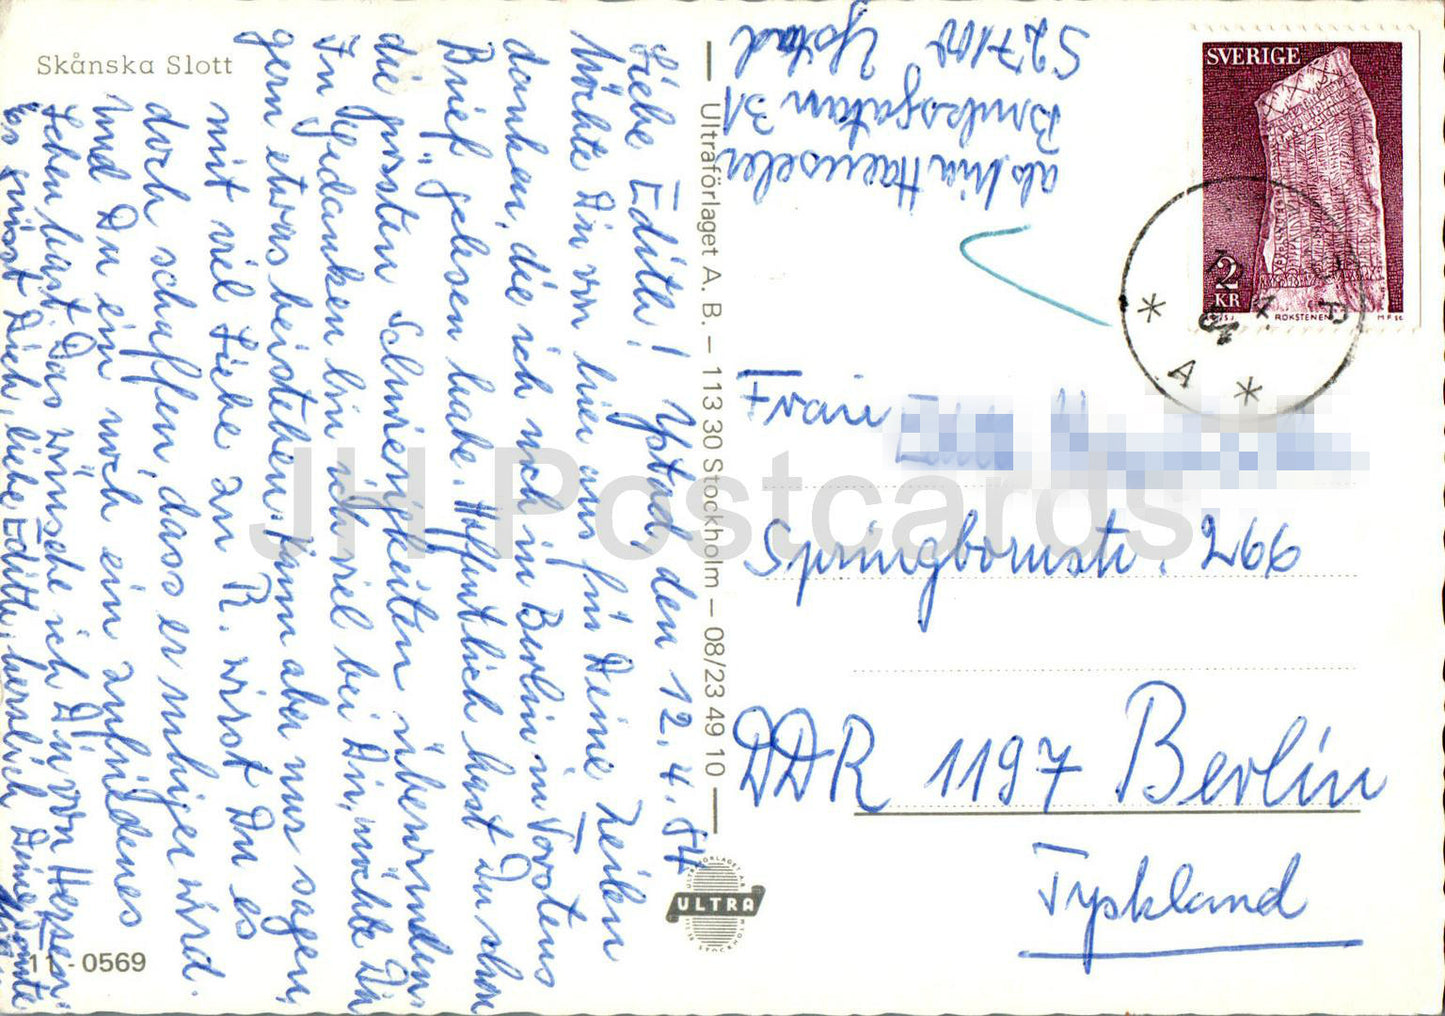 Skånska Slott
Ystad, den 12.4.84
Liebe Edith!
Möchte Dir von hier aus für Deine Zeilen
danken, die ich noch in Berlin im Vorotens
Brief gelesen habe. Hoffentlich hast Du schon
die grössten Schwierigkeiten überwunden.
In Gedanken bin ich viel bei Dir, möchte Dir
gern etwas beistehen. Kann aber nur sagen,
mit viel Liebe an R. wirst Du es
doch schaffen, dass er ruhiger wird.
Und Du ein noch ein zufriedenes
Leben hast. Das wünsche ich Dir von Herzen.
Es grüsst Dich, liebe Edith, herzlich Deine
11-0569
Ultraförlaget A. B. – 113 30 Stockholm – 08/23 49 10
ULTRA
abs. Haeuseler
Bruksgatan 31
S 27100 Ystad
SVERIGE
2 KR
RÖKSTENEN
A
Frau
Springbornstr. 266
DDR 1197 Berlin
Tyskland
JH Postcards